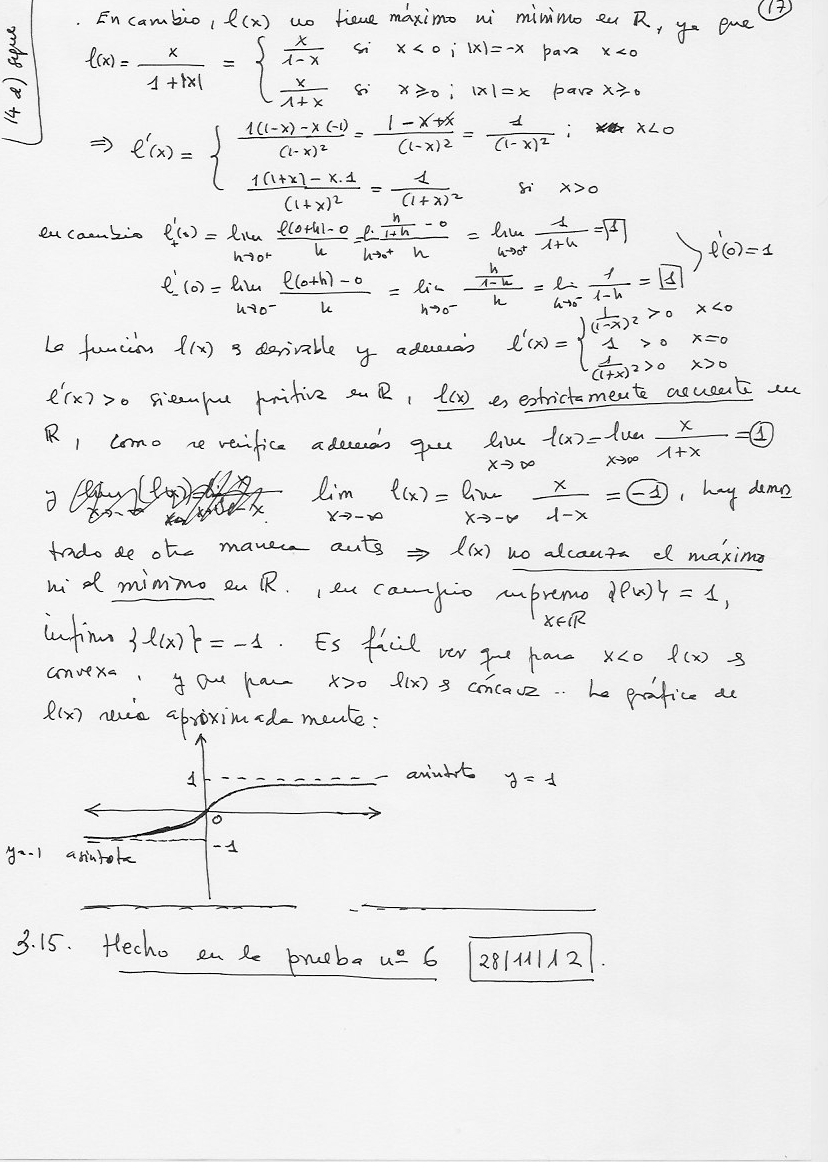 17
14 d) sigue
. En cambio, l(x) no tiene máximo ni mínimo en R, ya que
l(x) = x/(1+|x|) = { x/(1-x) si x < 0 ; |x| = -x para x<0
x/(1+x) si x ≥ 0 ; |x| = x para x ≥ 0
⇒ l'(x) = { (1(1-x) - x(-1))/(1-x)² = (1-x+x)/(1-x)² = 1/(1-x)² ; x<0
(1(1+x) - x.1)/(1+x)² = 1/(1+x)² si x>0
en cambio l'₊(0) = lim h→0⁺ (l(0+h)-0)/h = li h→0⁺ (h/(1+h) - 0)/h = lim h→0⁺ 1/(1+h) = 1
l'₋(0) = lim h→0⁻ (l(0+h)-0)/h = lim h→0⁻ (h/(1-h))/h = li h→0⁻ 1/(1-h) = 1
l'(0) = 1
La función l(x) es derivable y además l'(x) = { 1/(1-x)² > 0 x<0
1 > 0 x=0
1/(1+x)² > 0 x>0
l'(x) > 0 siempre positiva en R, l(x) es estrictamente creciente en
R, como se verifica además que lim x→∞ l(x) = lim x→∞ x/(1+x) = 1
y lim x→-∞ l(x) = lim x→-∞ x/(1-x) = -1, hay demos
trado de otra manera antes ⇒ l(x) no alcanza el máximo
ni el mínimo en R. , en cambio supremo {l(x)} x∈R = 1,
ínfimo {l(x)} = -1. Es fácil ver que para x<0 l(x) es
convexa, y que para x>0 l(x) es cóncava .. La gráfica de
l(x) sería aproximadamente:
1
asíntota y = 1
0
-1
y=-1 asíntota
3.15. Hecho en la prueba nº 6 28/11/12.